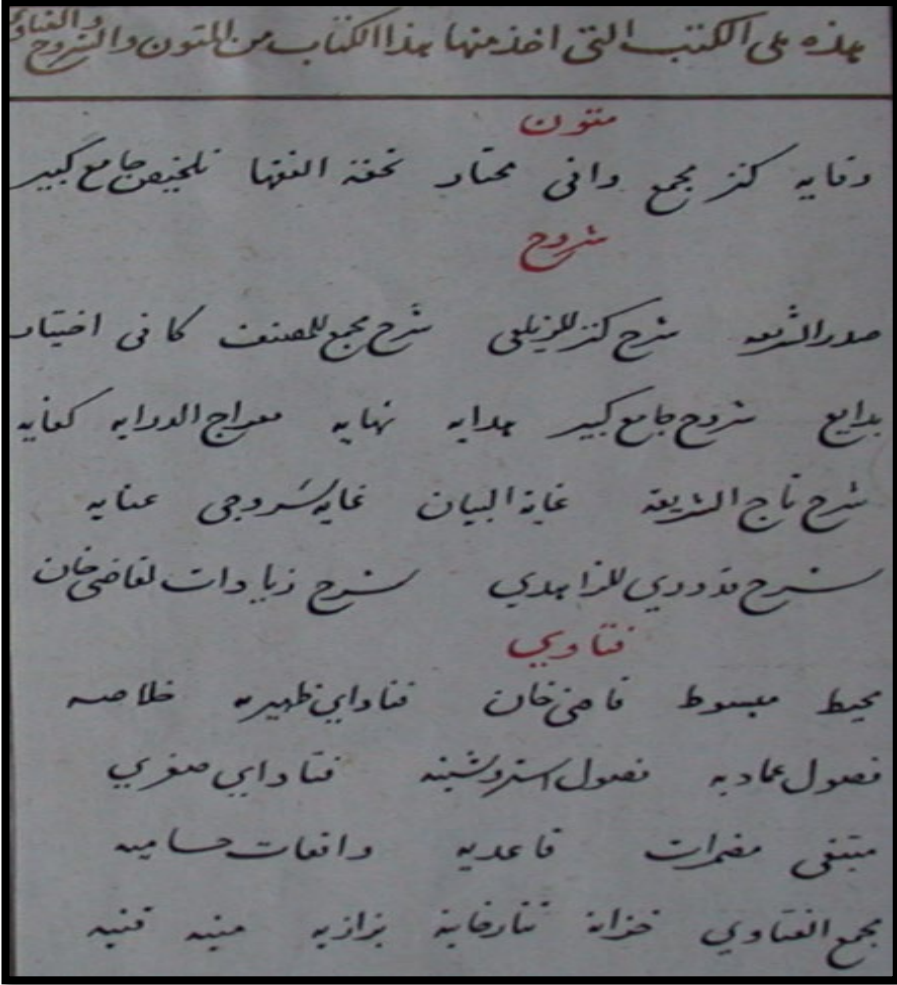 هذه هى الكتب التى اخذ منها هذا الكتاب من المتون والشروح والفتاوى
متون
وقايه كنز مجمع وافى مختار تحفة الفقها تلخيص جامع كبير
شروح
صدر الشريعه شرح كنز للزيلعى شرح مجمع للمصنف كافى اختيار
بدايع شروح جامع كبير هدايه نهايه معراج الدرايه كفايه
شرح تاج الشريعه غاية البيان غايه سَروجى عنايه
شرح قدوري للزاهدي شرح زيادات لقاضى خان
فتاوي
محيط مبسوط قاضى خان فتاواي ظهيريه خلاصه
فصول عماديه فصول استروشنيه فتاواي صغري
مبتغى مضمرات قاعديه واقعات حساميه
مجمع الفتاوي خزانه تتارخانيه بزازيه منيه قنيه